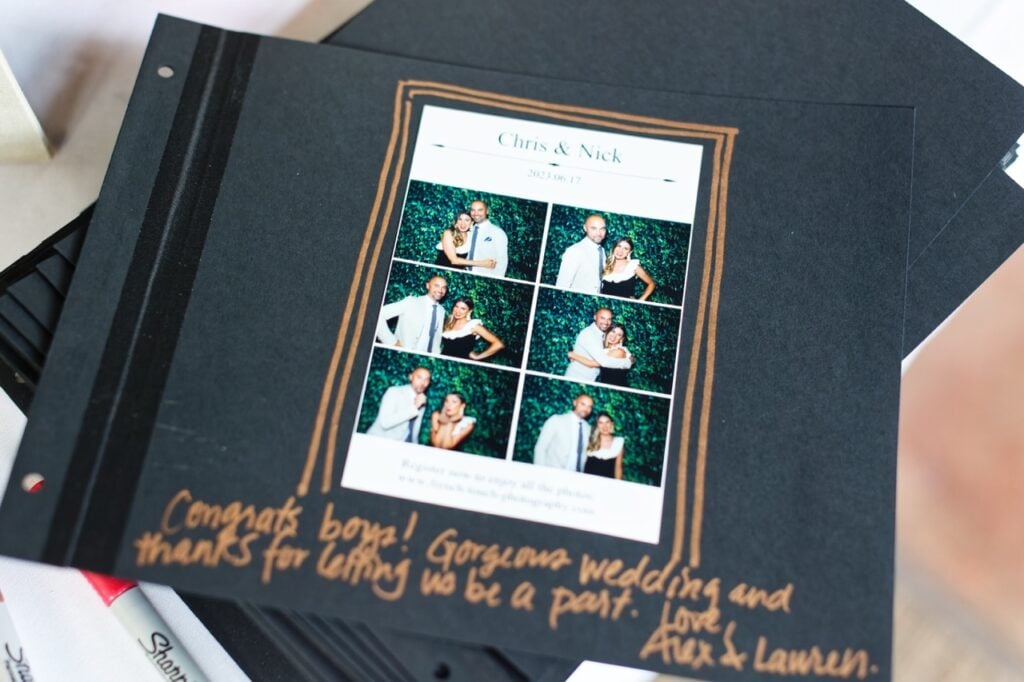 Chris & Nick
2023.06.17
Register now to enjoy all the photos!
Congrats boys! Gorgeous wedding and
thanks for letting us be a part. Love,
Alex & Lauren.
Sharp